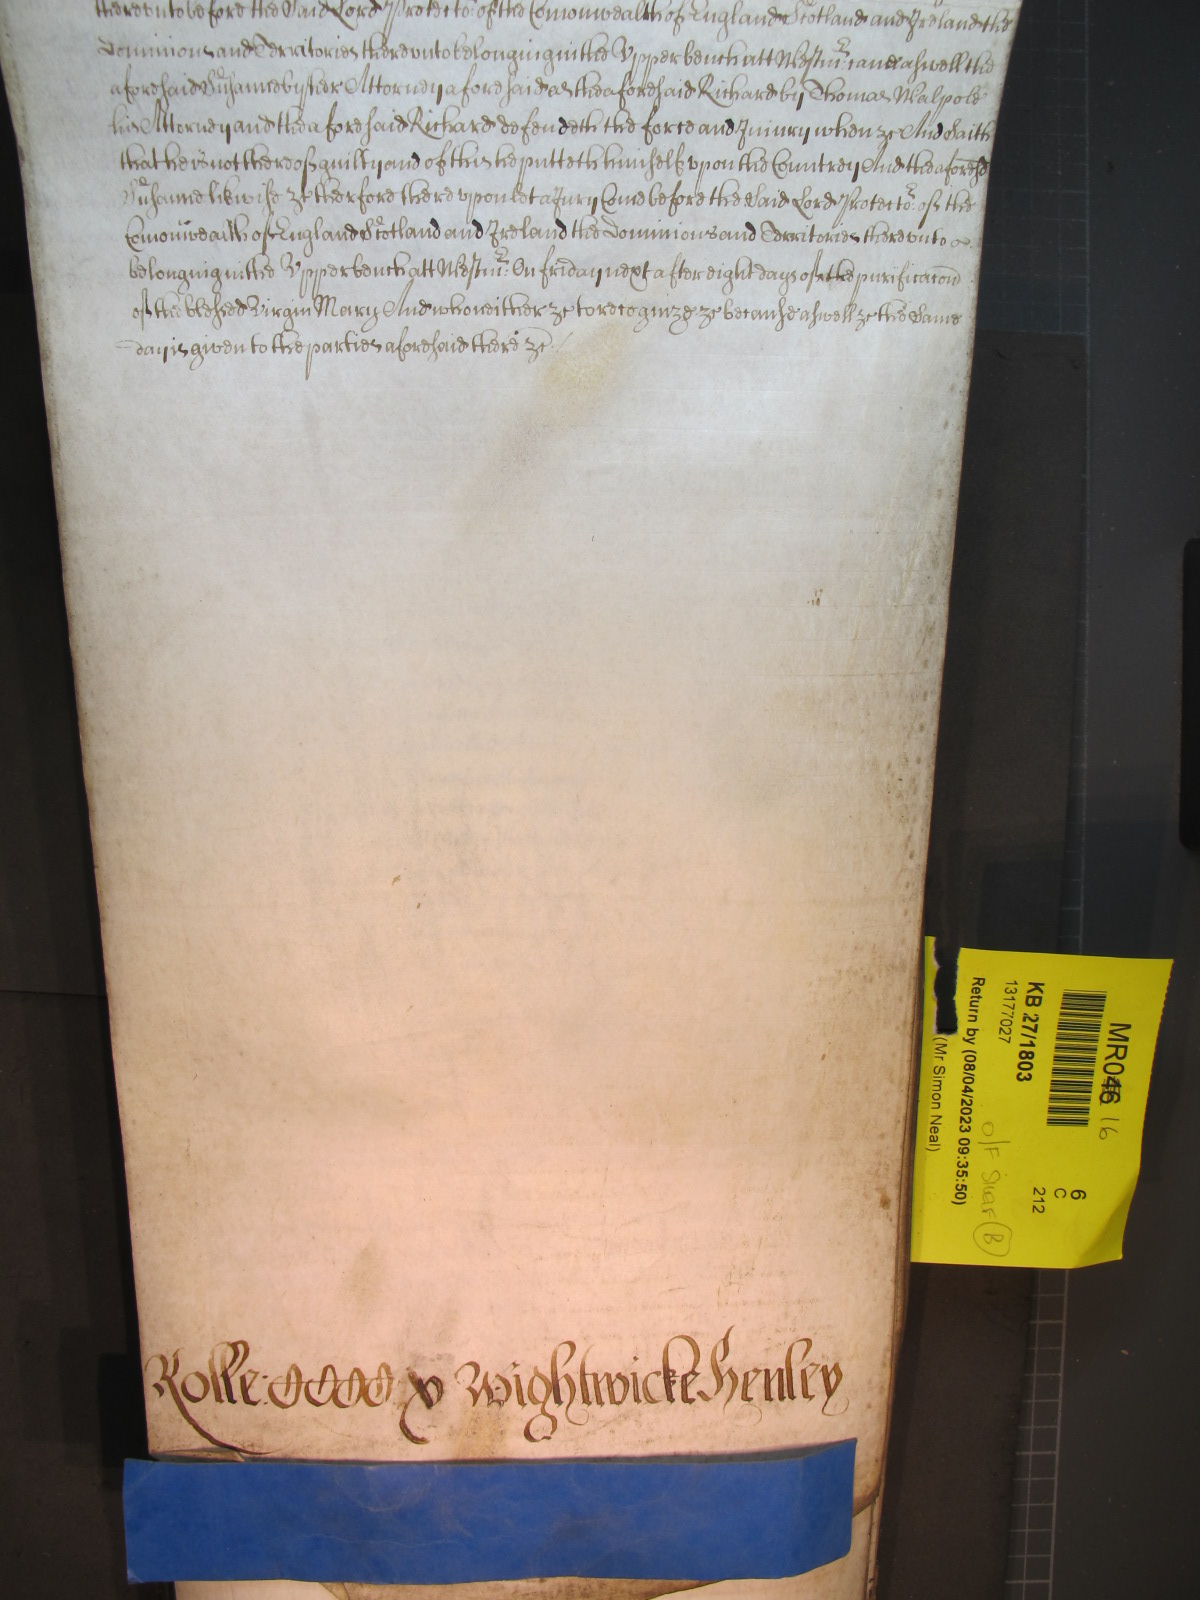 thereunto before the said Lord Protector of the Comonwealth of England Scotland and Ireland the
Dominions and Territories thereunto belonging in the Upper bench att Westmr: came aswell the
aforesaid Susanne by her Attorney aforesaid as the aforesaid Richard by Thomas Walpole
his Attorney and the aforesaid Richard defendeth the force and Iniury when &c And saith
that he is not thereof guilty and of this he putteth himself upon the Countrey And the aforesd
Susanne likewise &c therfore thereupon let a Jury Come before the said Lord Protector: of the
Comonwealth of England Scotland and Ireland the Dominions and Territories thereunto
belonging in the Upper bench att Westmr: On friday next after eight dayes of the purificacon
of the blessed Virgin Mary And who neither &c to recognize &c because aswell &c the same
day is given to the parties aforesaid there &c
Rolle: CCCC x Wightwicke Henley
MR046 16
6
C
212
KB 27/1803
13177027
O/F Shar B
Return by (08/04/2023 09:35:50)
(Mr Simon Neal)